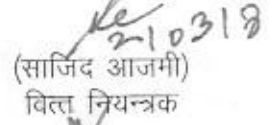 210318
(साजिद आजमी)
वित्त नियन्त्रक